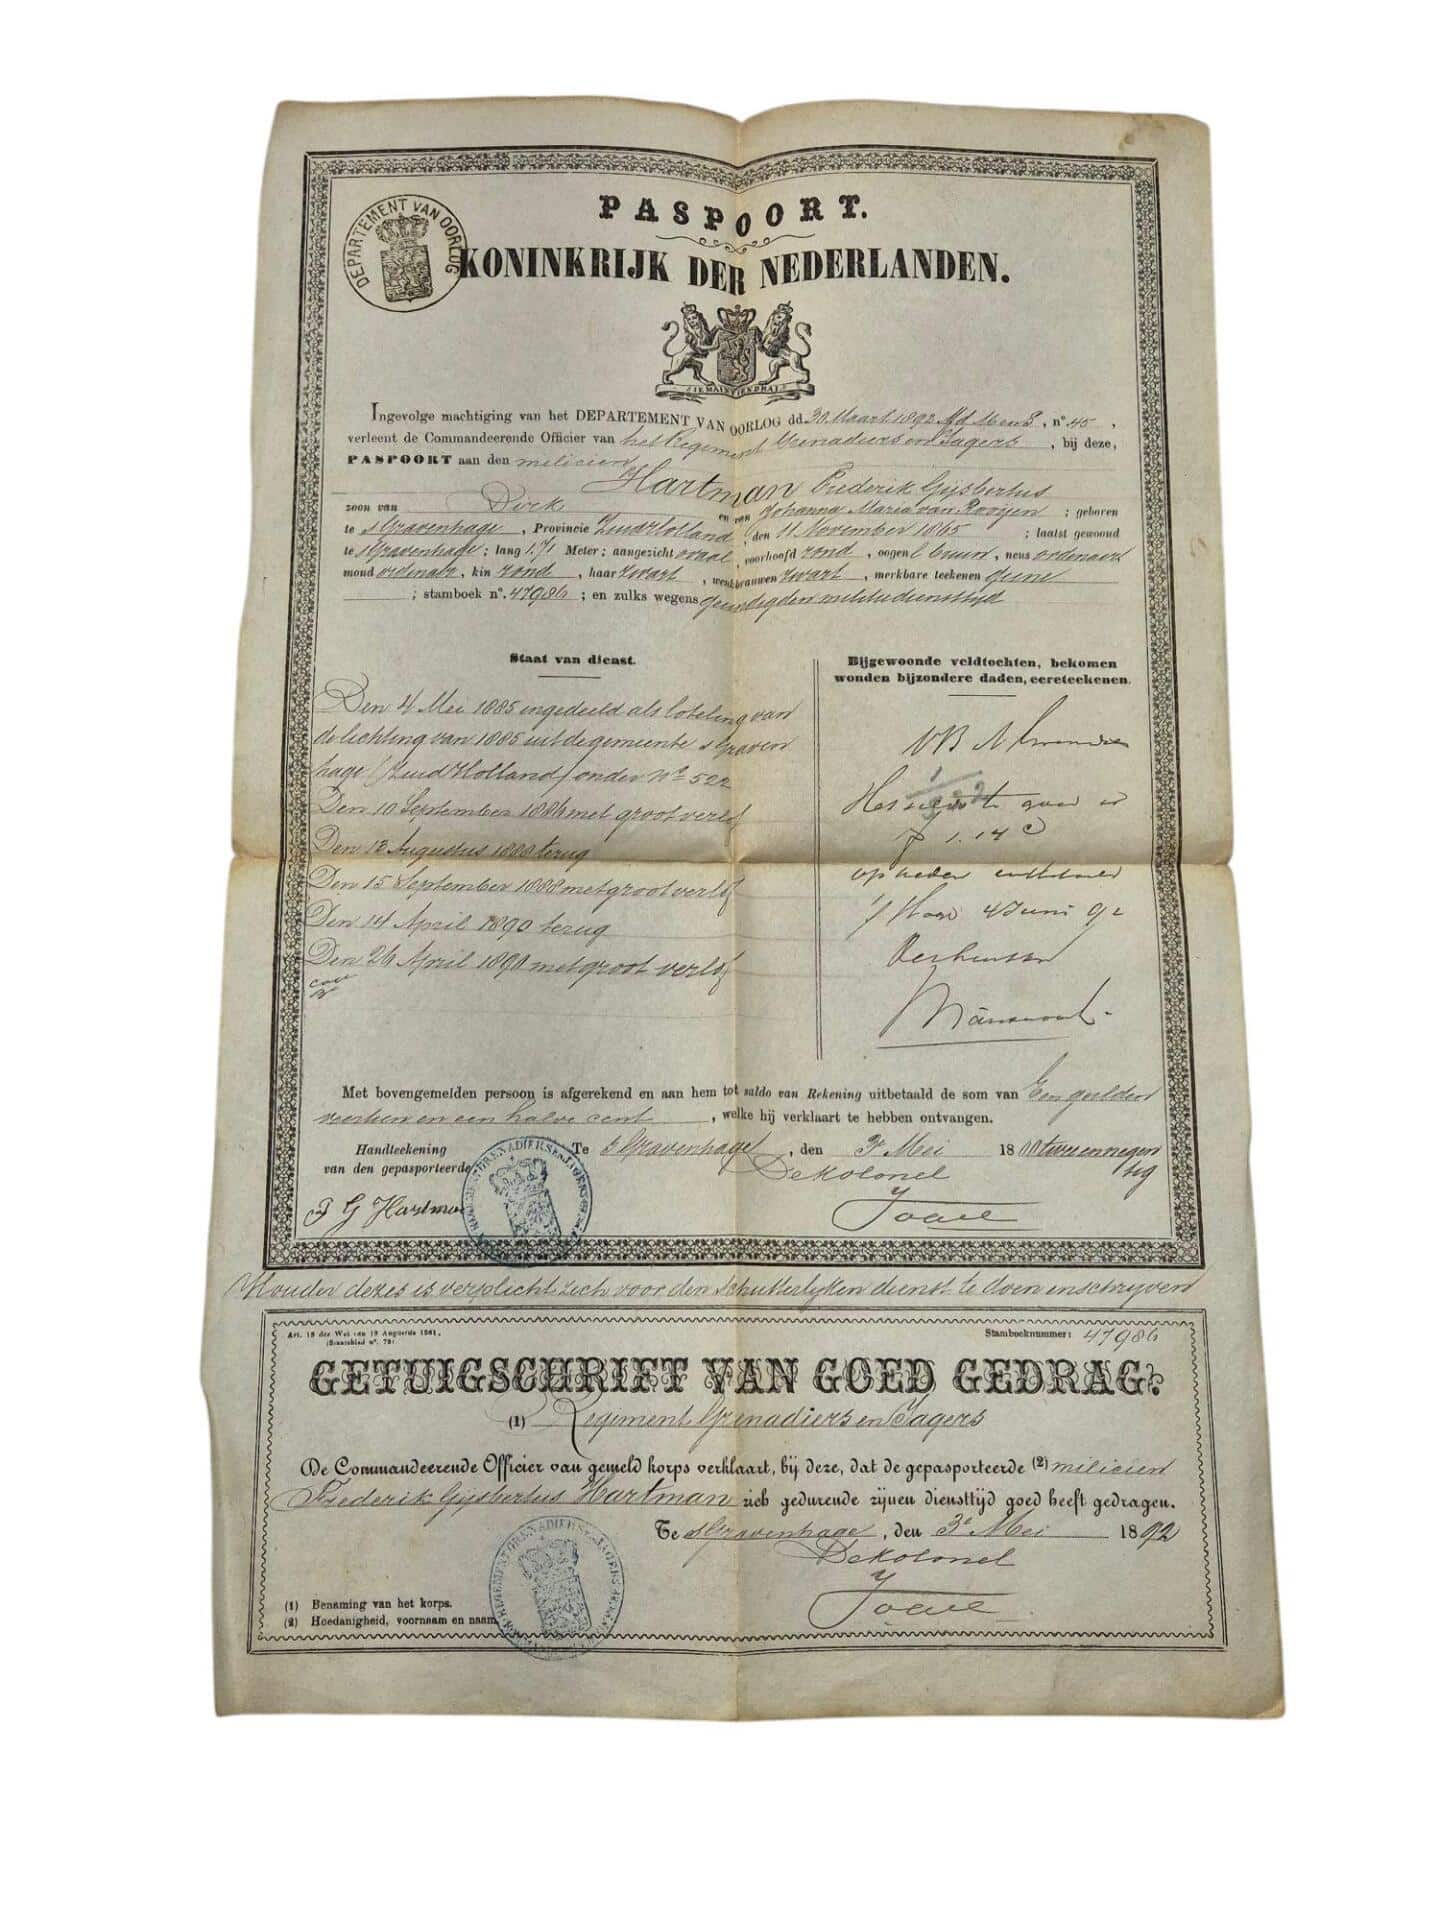 DEPARTEMENT VAN OORLOG
PASPOORT.
KONINKRIJK DER NEDERLANDEN.
JE MAINTIENDRAI
Ingevolge machtiging van het DEPARTEMENT VAN OORLOG dd. 30 Maart 1892 Afd Men S, nº. 45,
verleent de Commandeerende Officier van het Regement Grenadiers en Jagers, bij deze,
PASPOORT aan den milicien
Hartman Frederik Gijsbertus
zoon van Dirk en van Johanna Maria van Rooijen; geboren
te s Gravenhage, Provincie Zuid Holland, den 11 November 1865; laatst gewoond
te s Gravenhage; lang 1.71 Meter; aangezicht ovaal, voorhoofd rond, oogen bruin, neus ordenair
mond ordinair, kin rond, haar zwart, wenkbrauwen zwart, merkbare teekenen geene
; stamboek nº. 47986; en zulks wegens geeindigden militie diensttijd
Staat van dienst.
Den 4 Mei 1885 ingedeeld als loteling van
de lichting van 1885 uit de gemeente s Graven
hage (Zuid Holland) onder Nº 522
Den 10 September 1886 met groot verlof
Den 13 Augustus 1888 terug
Den 15 September 1888 met groot verlof
Den 14 April 1890 terug
Den 26 April 1890 met groot verlof
Bijgewoonde veldtochten, bekomen
wonden bijzondere daden, eereteekenen.
f 1.14
op heden
4 Juni 92
Met bovengemelden persoon is afgerekend en aan hem tot saldo van Rekening uitbetaald de som van Een gulden
veertien en een halve cent, welke hij verklaart te hebben ontvangen.
Handteekening
van den gepasporteerde
Te s Gravenhage, den 3e Mei 18 twee en negen
tig
De Kolonel
F G Hartman
REGEMENT GRENADIERS EN JAGERS
Houder dezes is verplicht zich voor den schutterlijken dienst te doen inschrijven
Art. 18 der Wet van 19 Augustus 1861,
(Staatsblad nº. 72)
Stamboeknummer: 47986
GETUIGSCHRIFT VAN GOED GEDRAG.
(1) Regement Grenadiers en Jagers
De Commandeerende Officier van gemeld korps verklaart, bij deze, dat de gepasporteerde (2) milicien
Frederik Gijsbertus Hartman zich gedurende zijnen diensttijd goed heeft gedragen.
Te s Gravenhage, den 3e Mei 1892
De Kolonel
(1) Benaming van het korps.
(2) Hoedanigheid, voornaam en naam
REGEMENT GRENADIERS EN JAGERS